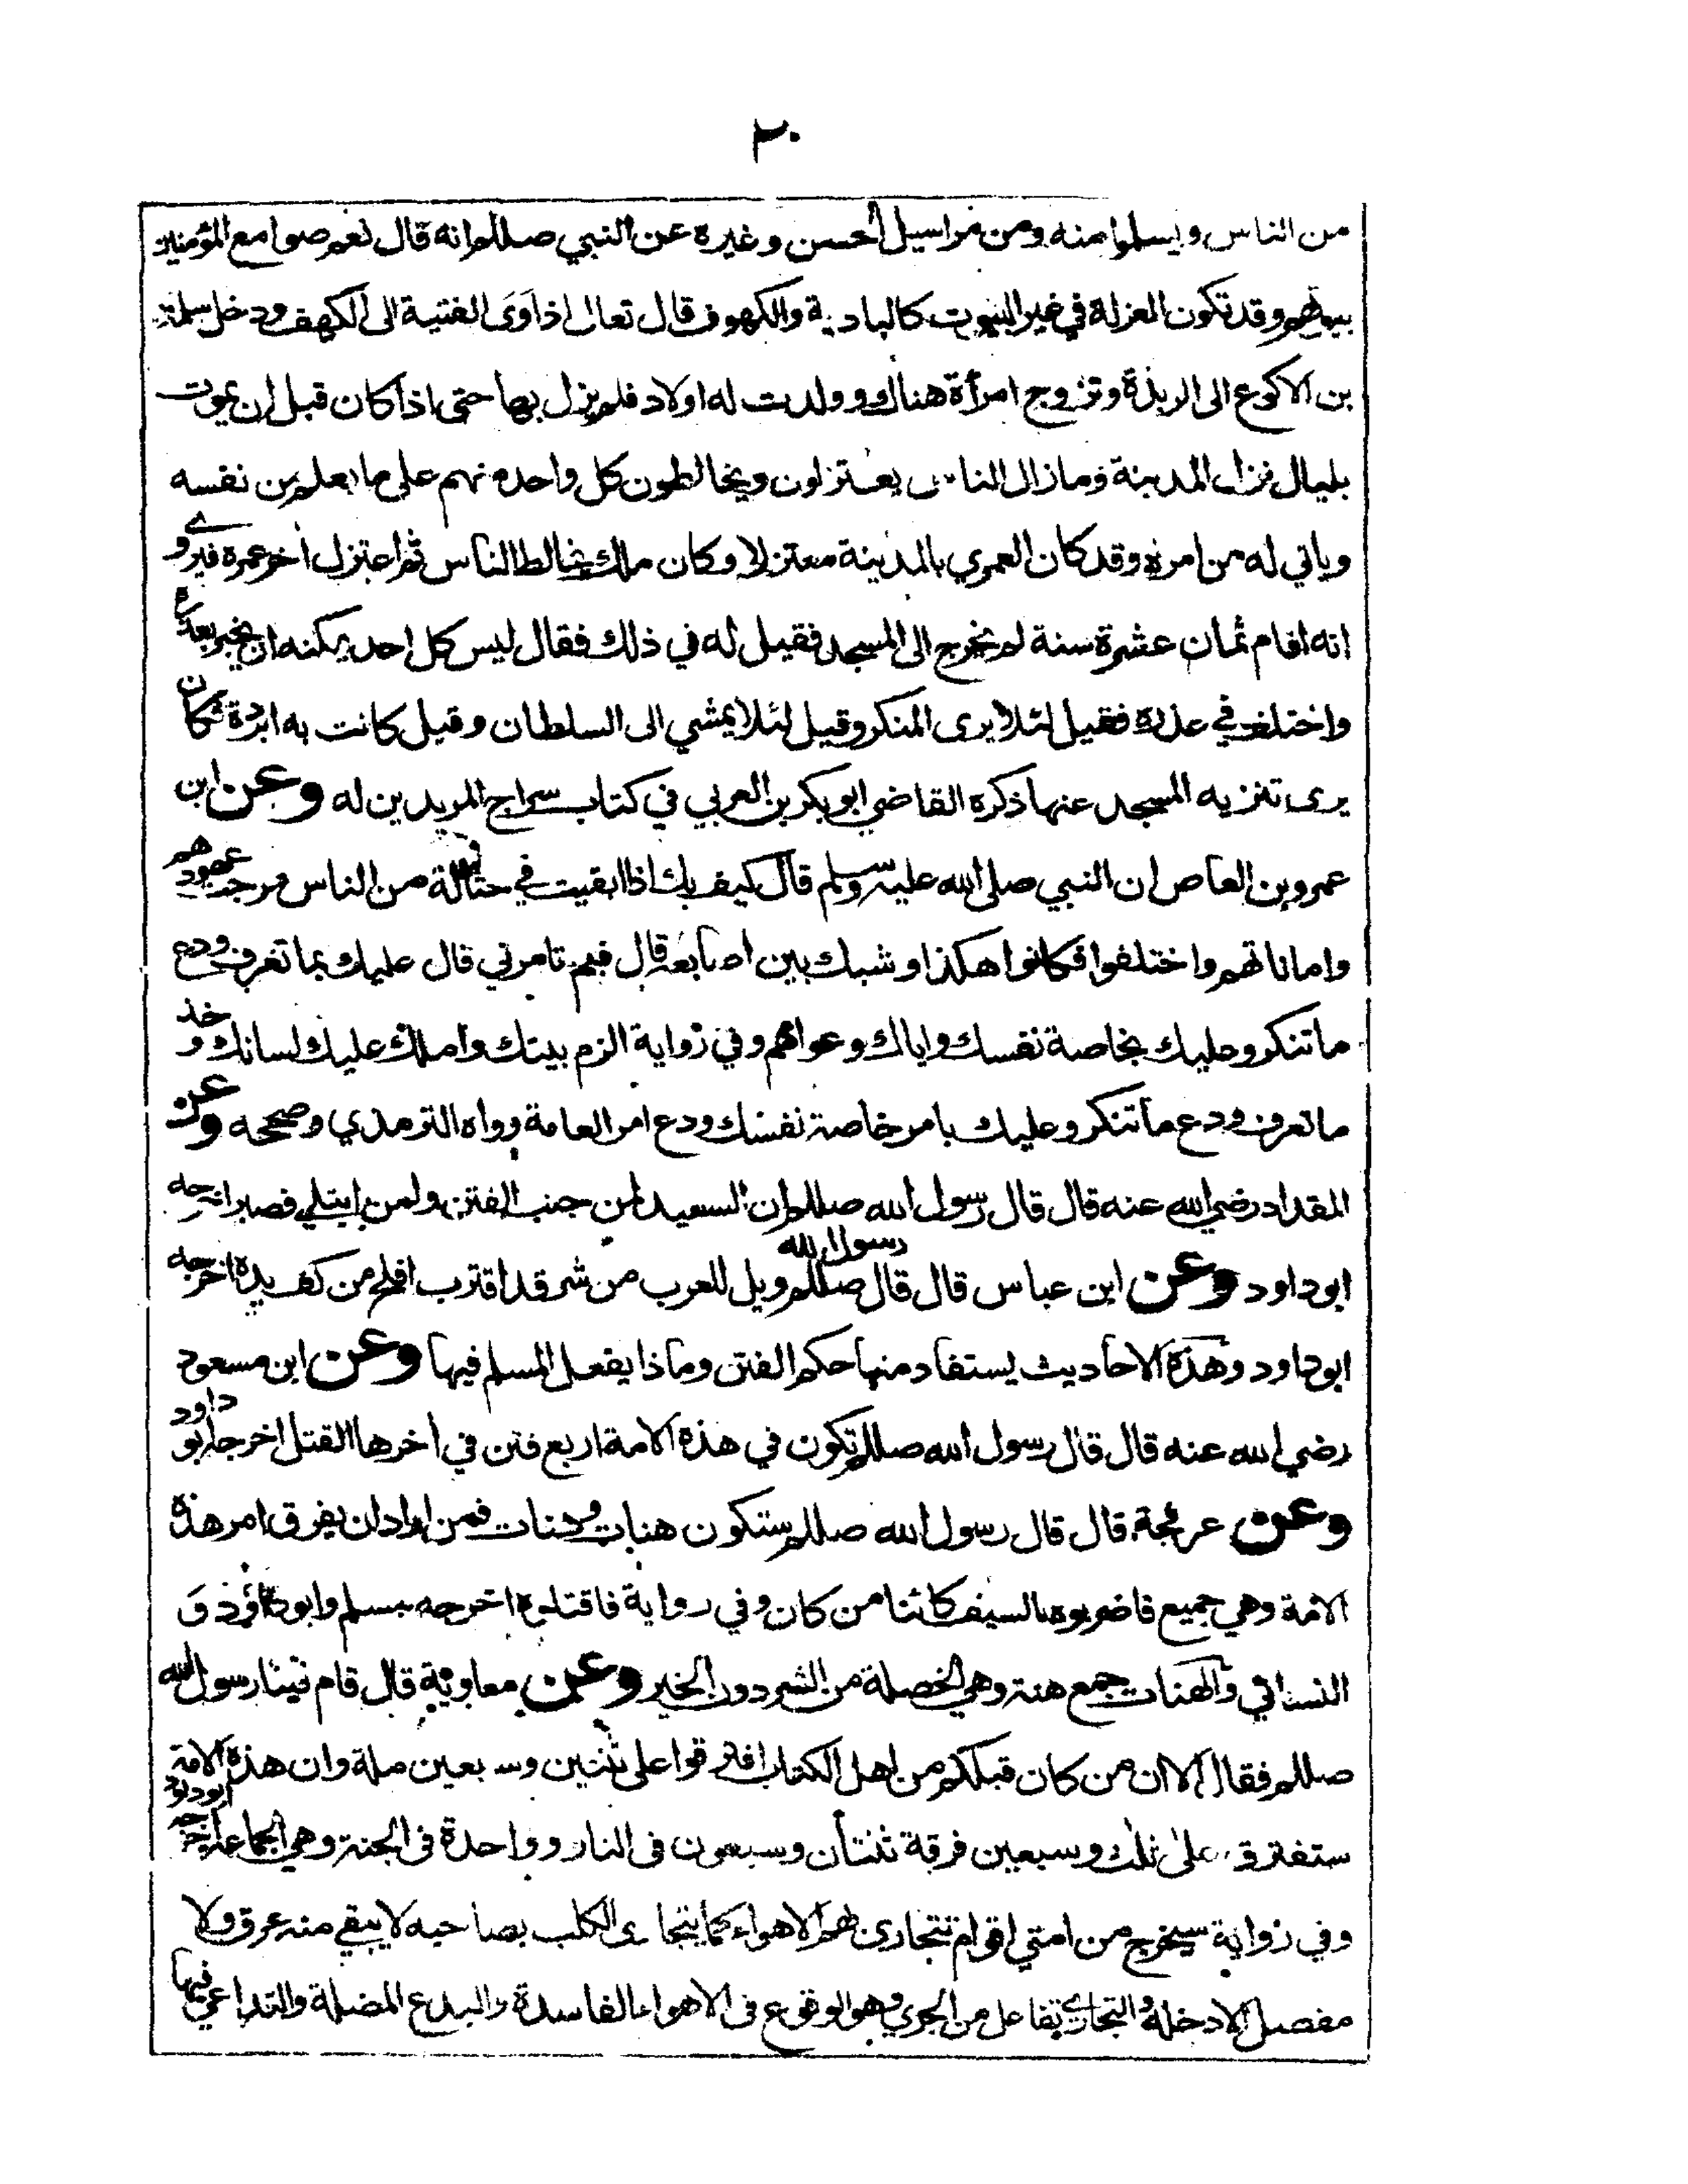 ٢٠
من الناس ويسلموا منه ومن مراسيل الحسن وغيره عن النبي صللم انه قال نعم صوامع المؤمنين
بيوتهم وقد تكون العزلة في غير البيوت كالبادية والكهوف قال تعالى اذ اوَى الفتية الى الكهف ودخل سلمة
بن الاكوع الى الربذة وتزوج امرأة هناك وولدت له اولاد فلم يزل بها حتى اذا كان قبل ان يموت
بليال نزل المدينة وما زال الناس يعتزلون ويخالطون كل واحد منهم على ما يعلم من نفسه
وياتي له من امره وقد كان العمري بالمدينة معتزلا وكان مالك يخالط الناس ثم اعتزل اخر عمره فيروى
انه اقام ثمان عشرة سنة لم يخرج الى المسجد فقيل له في ذلك فقال ليس كل احد يمكنه ان يخبر بعذره
واختلف في عذره فقيل لئلا يرى المنكر وقيل لئلا يمشي الى السلطان وقيل كانت به ابردة فكان
يرى تنزيه المسجد عنها ذكره القاضي ابو بكر بن العربي في كتاب سراج المريدين له وعن ابن
عمرو بن العاص ان النبي صلى الله عليه وسلم قال كيف بك اذا ابقيت في حثالة من الناس مرجت عهودهم
واماناتهم واختلفوا فكانوا هكذا وشبك بين اصابعه قال فبم تامرني قال عليك بما تعرف ودع
ما تنكر وعليك بخاصة نفسك واياك وعوامهم وفي رواية الزم بيتك واملك عليك لسانك وخذ
ما تعرف ودع ما تنكر وعليك بامر خاصة نفسك ودع امر العامة رواه الترمذي وصححه وعن
المقداد رضي الله عنه قال قال رسول الله صللم ان السعيد لمن جنب الفتن ولمن ابتلي فصبر اخرجه
ابو داود وعن ابن عباس قال قال رسول الله صللم ويل للعرب من شر قد اقترب افلح من كف يده اخرجه
ابو داود وهذه الاحاديث يستفاد منها حكم الفتن وماذا يفعل المسلم فيها وعن ابن مسعود
رضي الله عنه قال قال رسول الله صللم تكون في هذه الامة اربع فتن في اخرها القتل اخرجه ابو داود
وعن عرفجة قال قال رسول الله صللم ستكون هنات وهنات فمن اراد ان يفرق امر هذه
الامة وهي جميع فاضربوه بالسيف كائنا من كان وفي رواية فاقتلوه اخرجه مسلم وابو داؤد و
النسائي والهنات جمع هنة وهي الخصلة من الشر دون الخير وعن معاوية قال قام فينا رسول الله
صللم فقال الا ان من كان قبلكم من اهل الكتاب افترقوا على ثنتين وسبعين ملة وان هذه الامة
ستفترق على ثلث وسبعين فرقة ثنتان وسبعون في النار وواحدة في الجنة وهي الجماعة اخرجه ابو داود
وفي رواية سيخرج من امتي اقوام تتجارى بهم الاهواء كما يتجارى الكلب بصاحبه لا يبقي منه عرق ولا
مفصل الا دخله والتجاري تفاعل من الجري وهو الوقوع في الاهواء الفاسدة والبدع المضلة والتداعي فيها